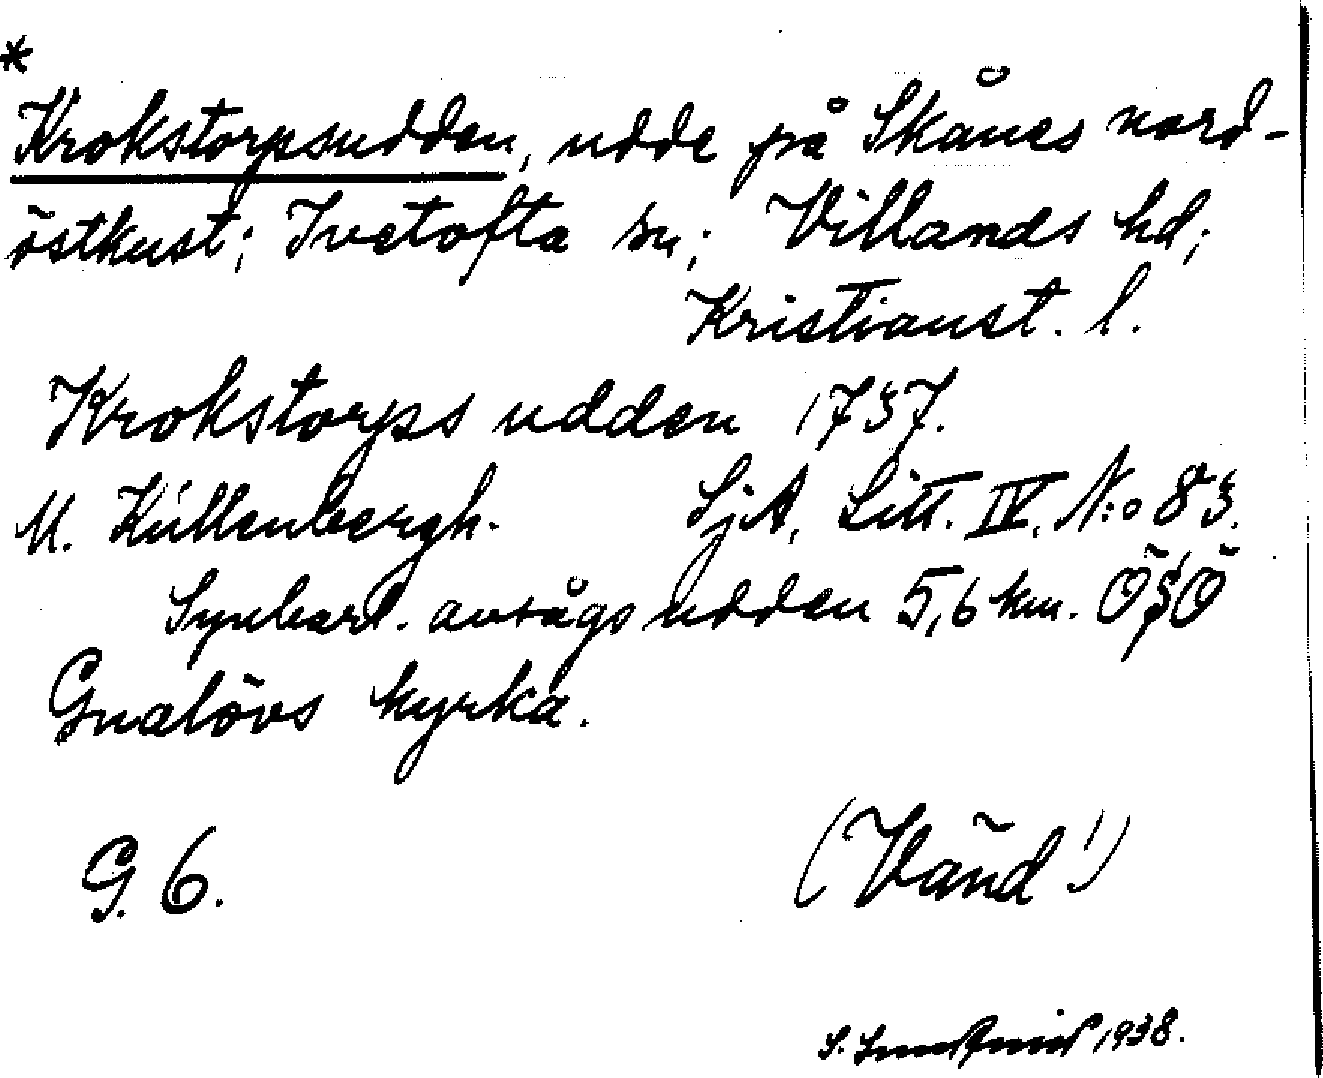 *
Krokstorpsudden, udde på Skånes nord-
östkust; Ivetofta sn; Villands hd;
Kristianst. l.
Krokstorps udden 1737.
M. Küllenbergh. SjA, Litt. IV, N:o 83.
Synbarl. avsågs udden 5,6 km. ÖSÖ
Gualövs kyrka.
G. 6.
(Vänd!)
S. 1938.